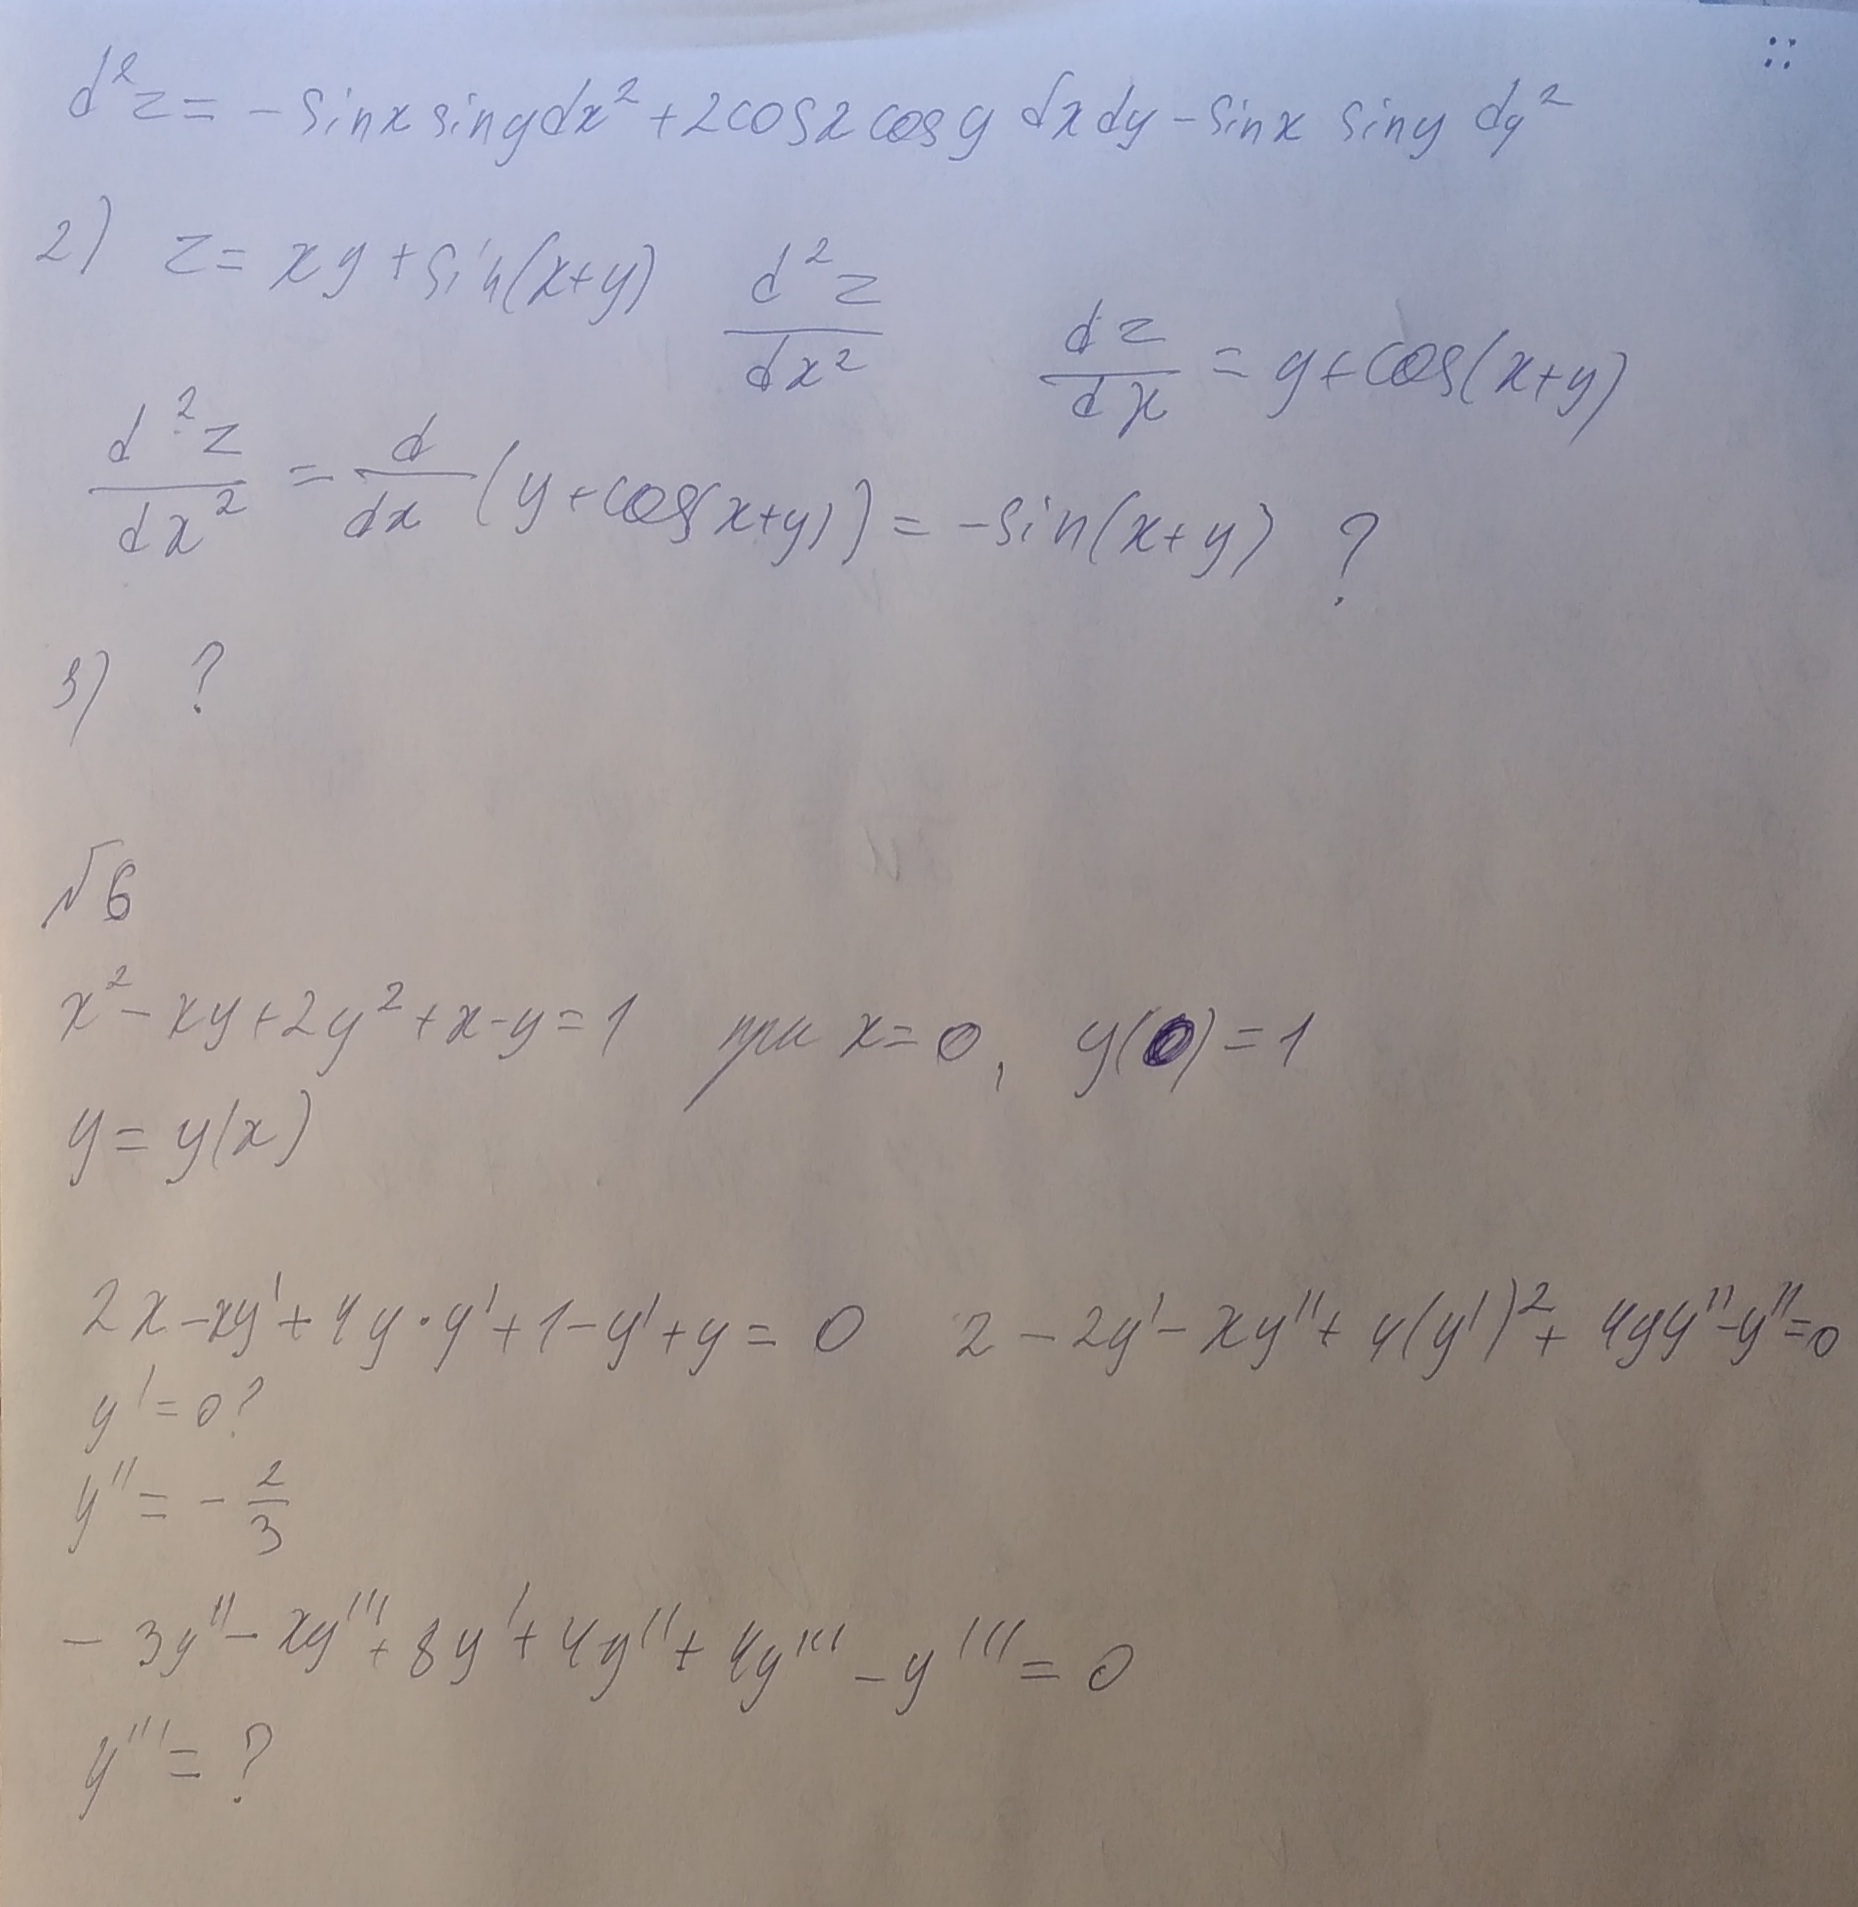 d²z = - sinx siny dx² + 2cosx cosy dxdy - sinx siny dy²
2) z = xy + sin(x+y) d²z/dx² dz/dx = y + cos(x+y)
d²z/dx² = d/dx (y + cos(x+y)) = -sin(x+y) ?
3) ?
№6
x² - xy + 2y² + x - y = 1 при x = 0, y(0) = 1
y = y(x)
2x - xy' + 4y·y' + 1 - y' + y = 0 2 - 2y' - xy'' + 4(y')² + 4yy'' - y'' = 0
y' = 0?
y'' = - 2/3
- 3y'' - xy''' + 8y' + 4y'' + 4y''' - y''' = 0
y''' = ?